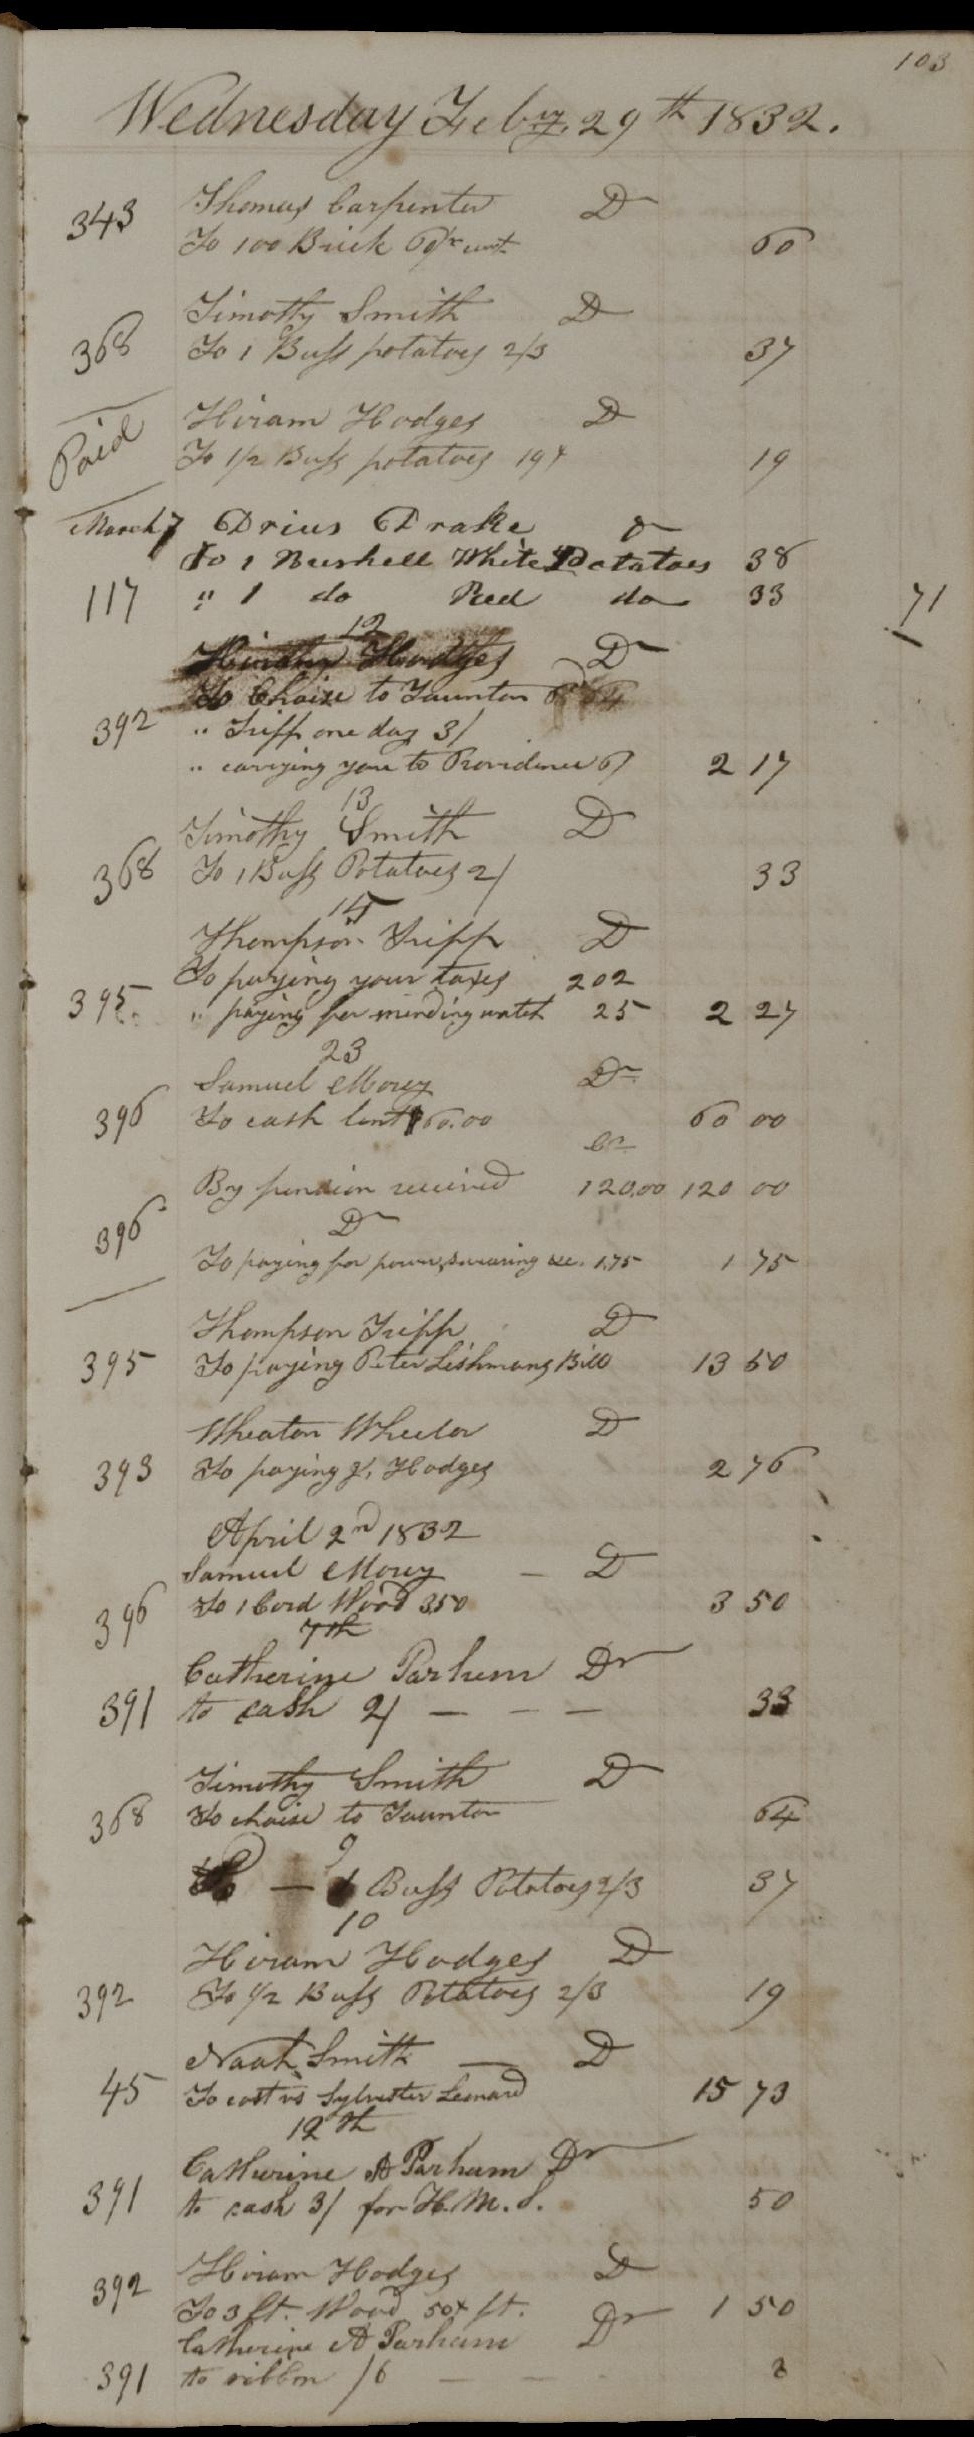 103
Wednesday Feby. 29th 1832.
343 Thomas Carpenter Dr
To 100 Brick 60
368 Timothy Smith Dr
To 1 Bush potatoes 2/3 37
Paid Hiram Hodges Dr
To 1/2 Bush potatoes 19
March 7 Drius Drake Dr
To 1 Bushell White Potatoes 38
117 " 1 do Red do 33 71
12
Hodges Dr
To Chaise to Taunton
392 " Tripp one day 3/
" carrying you to Providence 6/ 2 17
13
Timothy Smith Dr
368 To 1 Bush Potatoes 2/ 33
15
Thompson Tripp Dr
To paying your taxes 202
395 " paying for mending watch 25 2 27
23
Samuel Mowry Dr
396 To cash lent $60.00 60 00
Cr
By pension received 120.00 120 00
396 Dr
To paying for power, swearing &c. 1.75 1 75
Thompson Tripp Dr
395 To paying Peter Lishmans Bill 13 50
Wheaton Wheeler Dr
393 To paying Hodges 2 76
April 2nd 1832
Samuel Mowry - Dr
396 To 1 Cord Wood 3.50 3 50
7th
Catherine Parhum Dr
391 to cash 2/ - - - 33
Timothy Smith Dr
368 To chaise to Taunton 64
9
To - 1 Bush Potatoes 2/3 37
10
Hiram Hodges Dr
392 To 1/2 Bush Potatoes 2/3 19
Noah Smith - Dr
45 To cost vs Sylvester Leonard 15 73
12th
Catherine A Parhum Dr
391 to cash 3/ for H. M. S. 50
392 Hiram Hodges Dr
To 3 ft. Wood 50¢ ft. 1 50
Catherine A Parhum Dr
391 to ribbon /6 - - 8